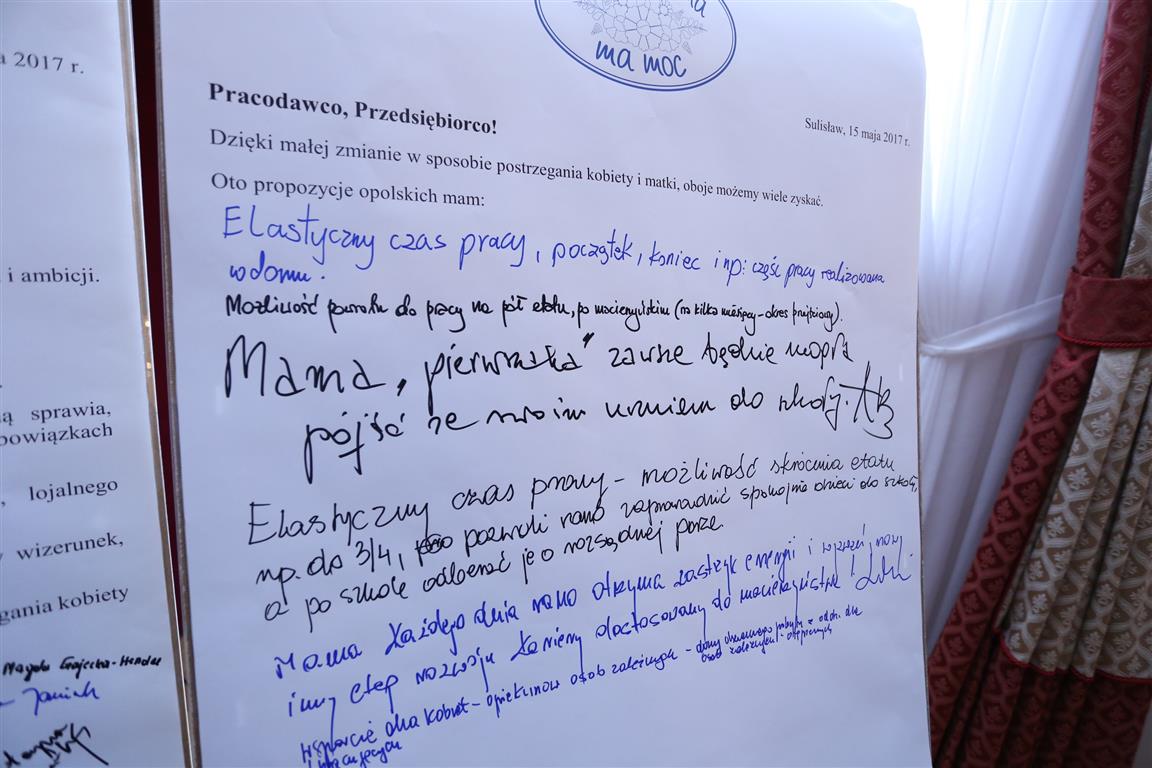 a 2017 r.
i ambicji.
ą sprawia,
bowiązkach
lojalnego
wizerunek,
gania kobiety
ma moc
Pracodawco, Przedsiębiorco!
Sulisław, 15 maja 2017 r.
Dzięki małej zmianie w sposobie postrzegania kobiety i matki, oboje możemy wiele zyskać.
Oto propozycje opolskich mam:
Elastyczny czas pracy, początek, koniec i np: część pracy realizowana
w domu.
Możliwość powrotu do pracy na pół etatu, po macierzyńskim (na kilka miesięcy - okres przejściowy).
Mama „pierwszaka" zawsze będzie mogła
pójść ze swoim uczniem do szkoły.
Elastyczny czas pracy - możliwość skrócenia etatu
np. do 3/4, pozwoli rano zaprowadzić spokojnie dzieci do szkoły,
a po szkole odbierać je o rozsądnej porze.
Mama każdego dnia rano otrzyma zastrzyk energii i
inny etap rozwoju kariery dostosowany do macierzyństwa!
Wsparcie dla kobiet - opiekunów osób zależnych - domy pobytu
osób